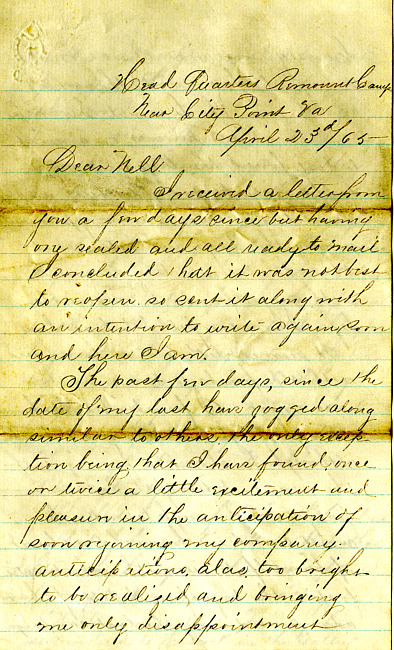 Head Quarters Remount Camp
Near City Point Va
April 23d/65
Dear Nell
I received a letter from
you a few days since but having
my sealed and all ready to mail
I concluded that it was not best
to reopen so sent it along with
an intention to write again soon
and here I am.
The past few days, since the
date of my last have jogged along
similar to others, the only excep-
tion being, that I have found once
or twice a little excitement and
pleasure in the anticipation of
soon rejoining my company.
anticipations, alas, too bright
to be realized and bringing
me only disappointment